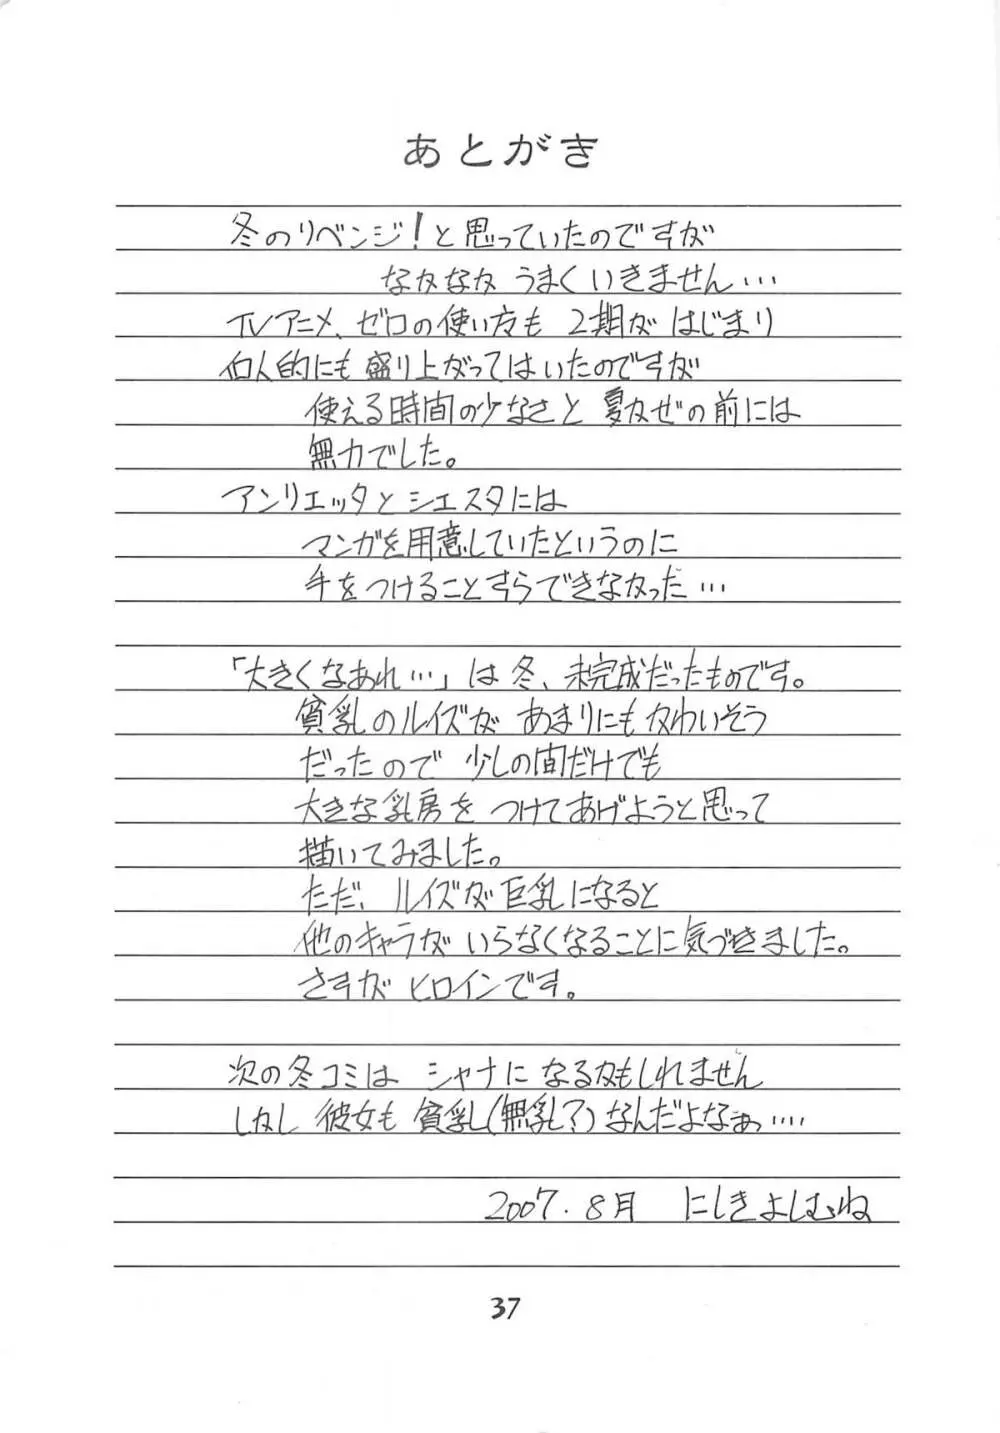 あとがき
冬のリベンジ!と思っていたのですが
なかなか うまくいきません…
TVアニメ、ゼロの使い方も 2期が はじまり
個人的にも 盛り上がってはいたのですが
使える時間の少なさと 夏かぜの前には
無力でした。
アンリエッタと シエスタには
マンガを用意していたというのに
手をつけることすらできなかった…
「大きくなあれ…」は 冬、未完成だったものです。
貧乳のルイズが あまりにもかわいそう
だったので 少しの間だけでも
大きな乳房を つけてあげようと思って
描いてみました。
ただ、ルイズが巨乳になると
他のキャラが いらなくなることに気づきました。
さすが ヒロインです。
次の冬コミは シャナに なるかもしれません
しかし 彼女も 貧乳(無乳?)なんだよなぁっ….
2007.8月 にしきよしむね
37